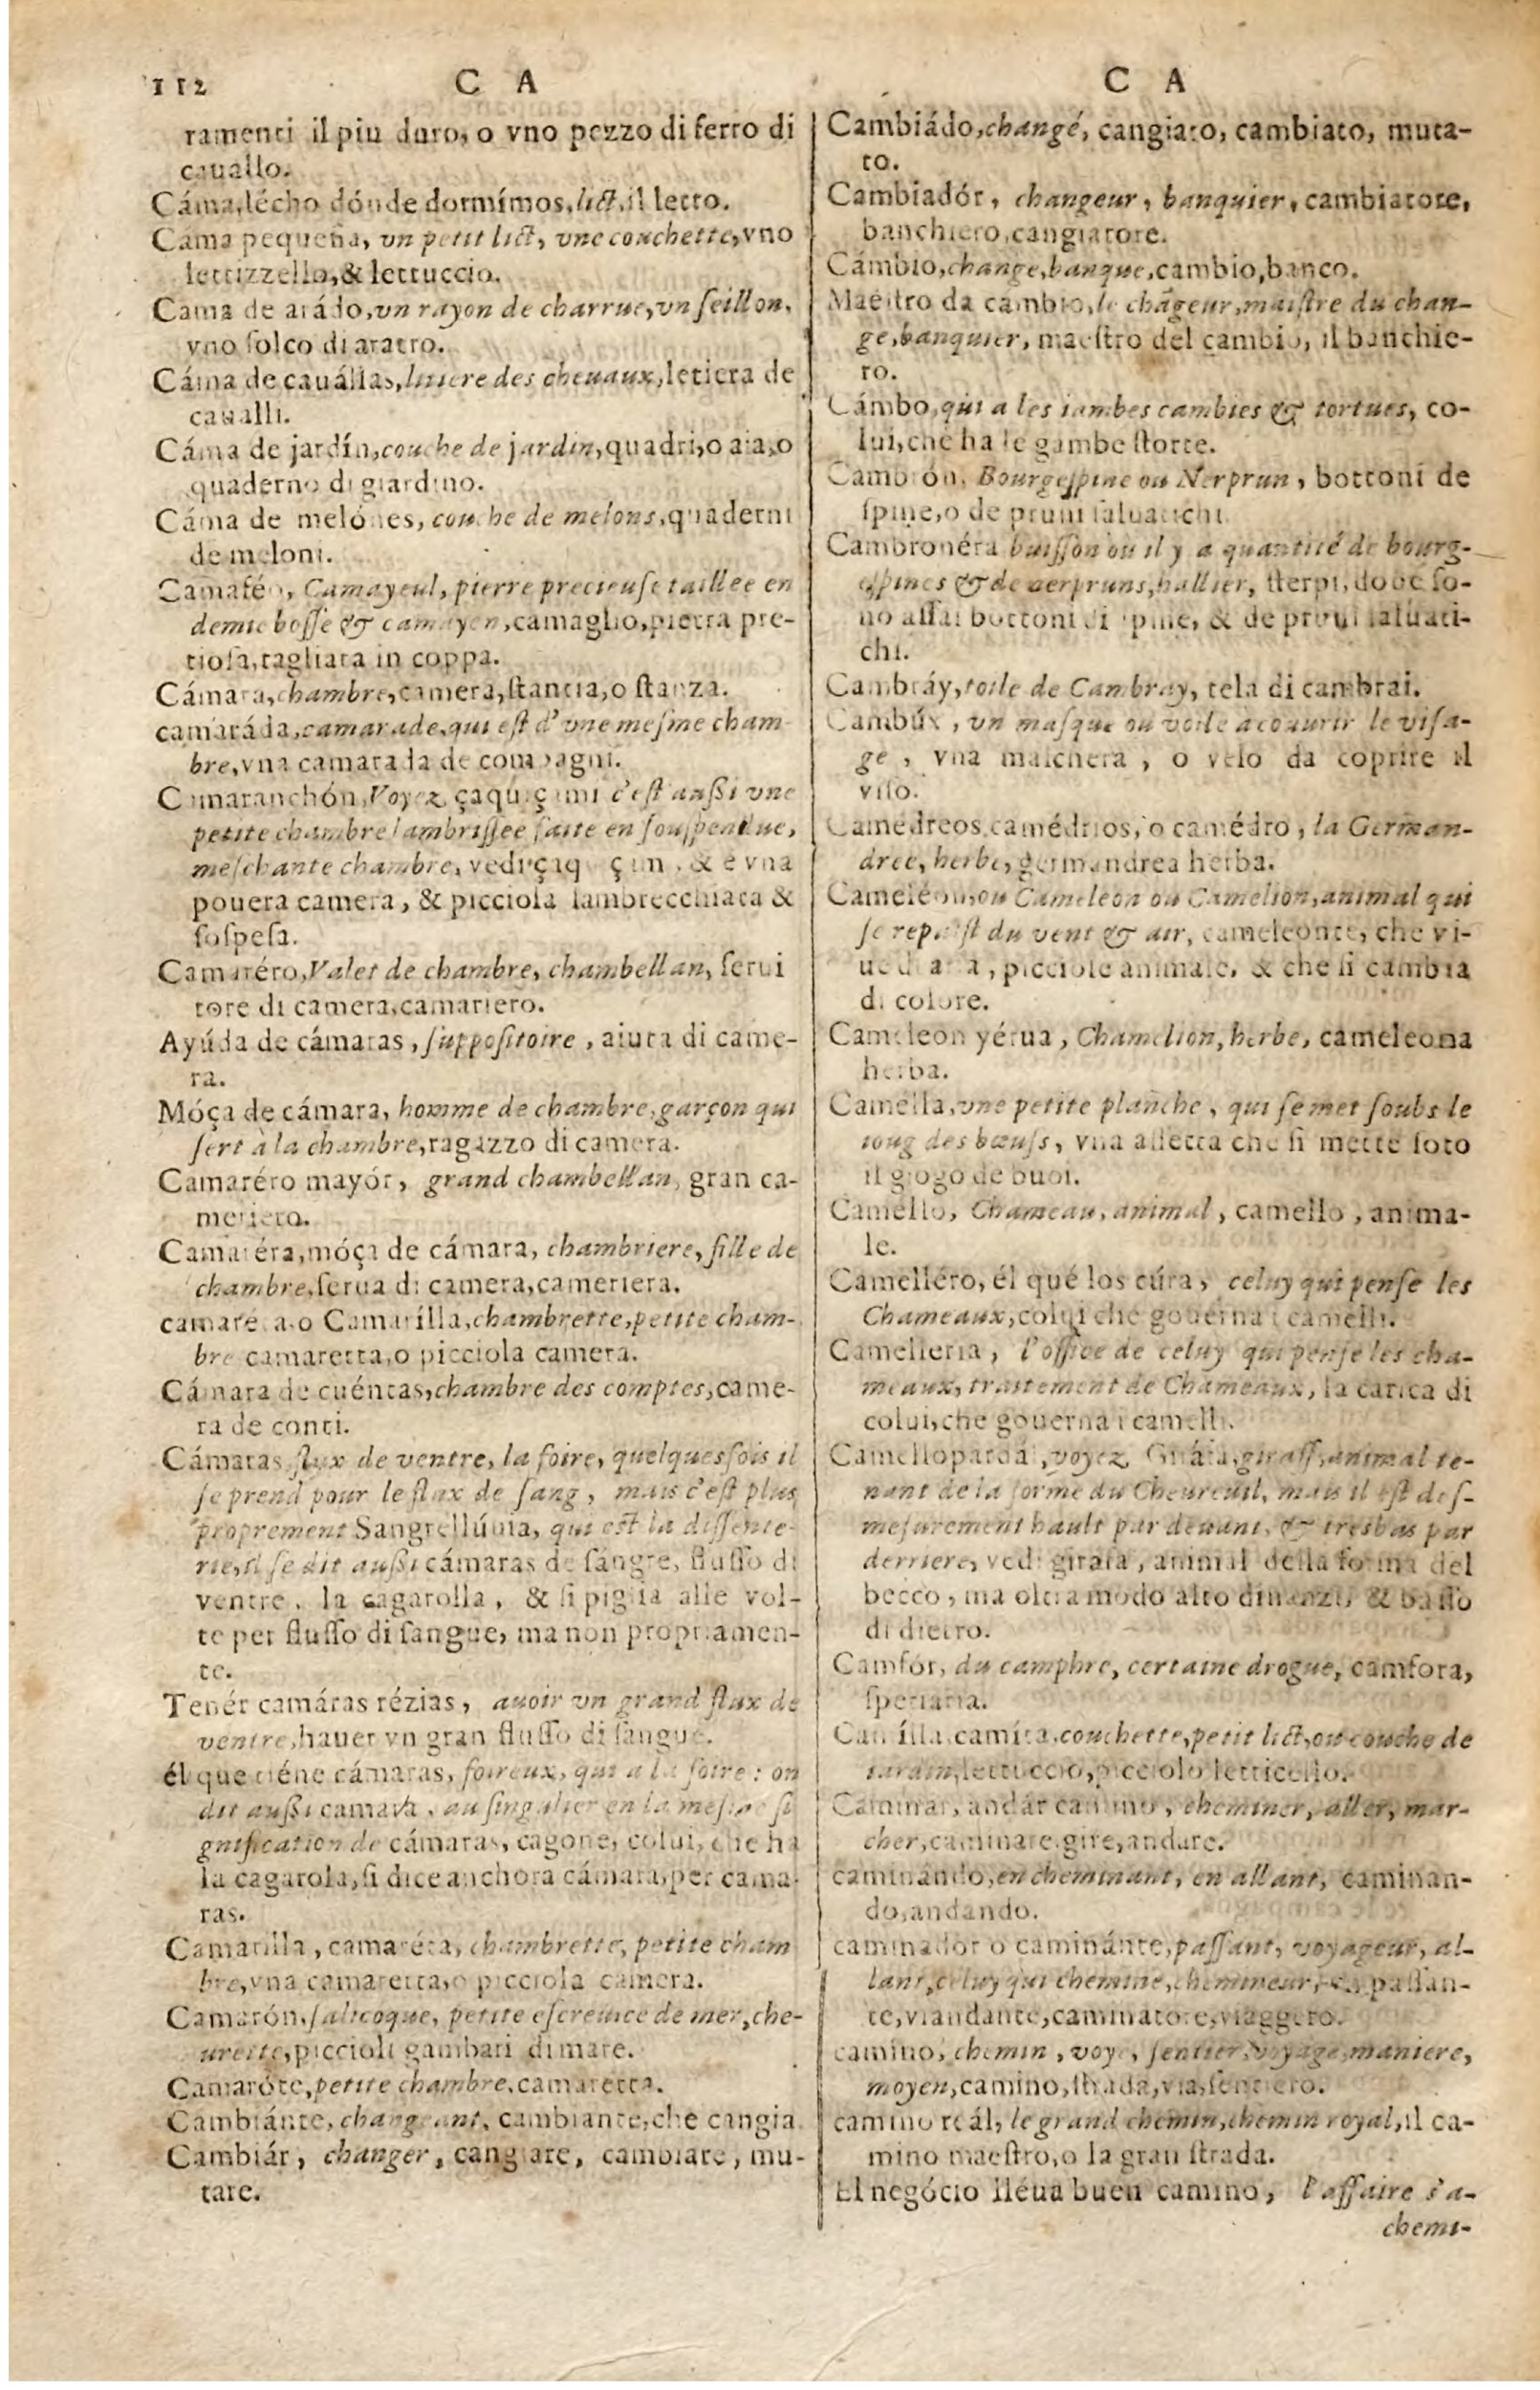 112 C A
ramenti il piu duro, o vno pezzo di ferro di
cauallo.
Cáma, lécho dónde dormímos, lict, il letto.
Cáma pequeña, vn petit lict, vne couchette, vno
lettizzello, & lettuccio.
Cama de arádo, vn rayon de charrue, vn seillon,
vno solco di aratro.
Cáma de cauállas, littiere des cheuaux, letiera de
caualli.
Cáma de jardín, couche de jardin, quadri, o aia, o
quaderno di giardino.
Cáma de melónes, couche de melons, quaderni
de meloni.
Camaféo, Camayeul, pierre precieuse taillee en
demie bosse & camayen, camaglio, pietra pre-
tiosa, tagliata in coppa.
Cámara, chambre, camera, stantia, o stanza.
camaráda, camarade, qui est d'vne mesme cham-
bre, vna camarada de compagni.
Camaranchón, Voyez çaquiçami c'est aussi vne
petite chambre lambrissee faite en souspendue,
meschante chambre, vedi çaquiçami, & è vna
pouera camera, & picciola lambrecchiata &
sospesa.
Camaréro, Valet de chambre, chambellan, serui
tore di camera, camariero.
Ayúda de cámaras, suppositoire, aiuta di came-
ra.
Móça de cámara, homme de chambre, garçon qui
sert à la chambre, ragazzo di camera.
Camaréro mayór, grand chambellan, gran ca-
meriero.
Camaréra, móça de cámara, chambriere, fille de
chambre, serua di camera, cameriera.
camaréta, o Camarílla, chambrette, petite cham-
bre camaretta, o picciola camera.
Cámara de cuéntas, chambre des comptes, came-
ra de conti.
Cámaras flux de ventre, la foire, quelquesfois il
se prend pour le flux de sang, mais c'est plus
proprement Sangrellúuia, qui est la dissente-
rie, il se dit aussi cámaras de sángre, flusso di
ventre, la cagarolla, & si piglia alle vol-
te per flusso di sangue, ma non propriamen-
te.
Tenér camáras rézias, auoir vn grand flux de
ventre, hauer vn gran flusso di sangue.
él que tiéne cámaras, foireux, qui a la foire: on
dit aussi camara, au singulier en la mesme si
gnification de cámaras, cagone, colui, che ha
la cagarola, si dice anchora cámara, per cama-
ras.
Camarilla, camaréta, chambrette, petite cham
bre, vna camaretta, o picciola camera.
Camarón, salicoque, petite escreuice de mer, che-
urette, piccioli gambari di mare.
Camaróte, petite chambre, camaretta.
Cambiánte, changeant, cambiante, che cangia
Cambiár, changer, cangiare, cambiare, mu-
tare.
C A
Cambiádo, changé, cangiato, cambiato, muta-
to.
Cambiadór, changeur, banquier, cambiatore,
banchiero, cangiatore.
Cámbio, change, banque, cambio, banco.
Maéstro da cambio, le chãgeur, maistre du chan-
ge, banquier, maestro del cambio, il banchie-
ro.
Cámbo, qui a les iambes cambies & tortues, co-
lui, che ha le gambe storte.
Cambrón, Bourgespine ou Nerprun, bottoni de
spine, o de pruni saluatichi.
Cambronéra buisson ou il y a quantité de bourg-
espines & de nerpruns, hallier, sterpi, doue so-
no assai bottoni di spine, & de pruni saluati-
chi.
Cambráy, toile de Cambray, tela di cambrai.
Cambúx, vn masque ou voile a couurir le visa-
ge, vna maschera, o velo da coprire il
viso.
Camedreos, camédrios, o camédro, la German-
dree, herbe, germandrea herba.
Cameléon, ou Cameleon ou Camelion, animal qui
se repaist du vent & air, cameleonte, che vi-
ue di aria, picciole animale, & che si cambia
di colore.
Cameleon yérua, Chamelion, herbe, cameleona
herba.
Camélla, vne petite planche, qui se met soubs le
ioug des bœufs, vna assetta che si mette soto
il giogo de buoi.
Caméllo, Chameau, animal, camello, anima-
le.
Camelléro, él qué los cúra, celuy qui pense les
Chameaux, colui che gouerna i camelli.
Camelleria, l'office de celuy qui pense les cha-
meaux, traittement de Chameaux, la carica di
colui, che gouerna i camelli.
Camellopardál, voyez Giráfa, giraff, animal te-
nant de la forme du Cheureuil, mais il est des-
mesurement hault par deuant, & tresbas par
derriere, vedi girafa, animal della forma del
becco, ma oltra modo alto dinanzi, & basso
di dietro.
Camfór, du camphre, certaine drogue, camfora,
spetiaria.
Camílla, camíta, couchette, petit lict, ou couche de
iardin, lettuccio, picciolo letticello.
Caminar, andár camino, cheminer, aller, mar-
cher, caminare, gire, andare.
caminándo, en cheminant, en allant, caminan-
do, andando.
caminador o caminánte, passant, voyageur, al-
lant, celuy qui chemine, chemineur, passan-
te, viandante, caminatore, viaggero.
camino, chemin, voye, sentier, voyage, maniere,
moyen, camino, strada, via, sentiero.
camino reál, le grand chemin, chemin royal, il ca-
mino maestro, o la gran strada.
El negócio lléua buen camino, l'affaire s'a-
chemi-